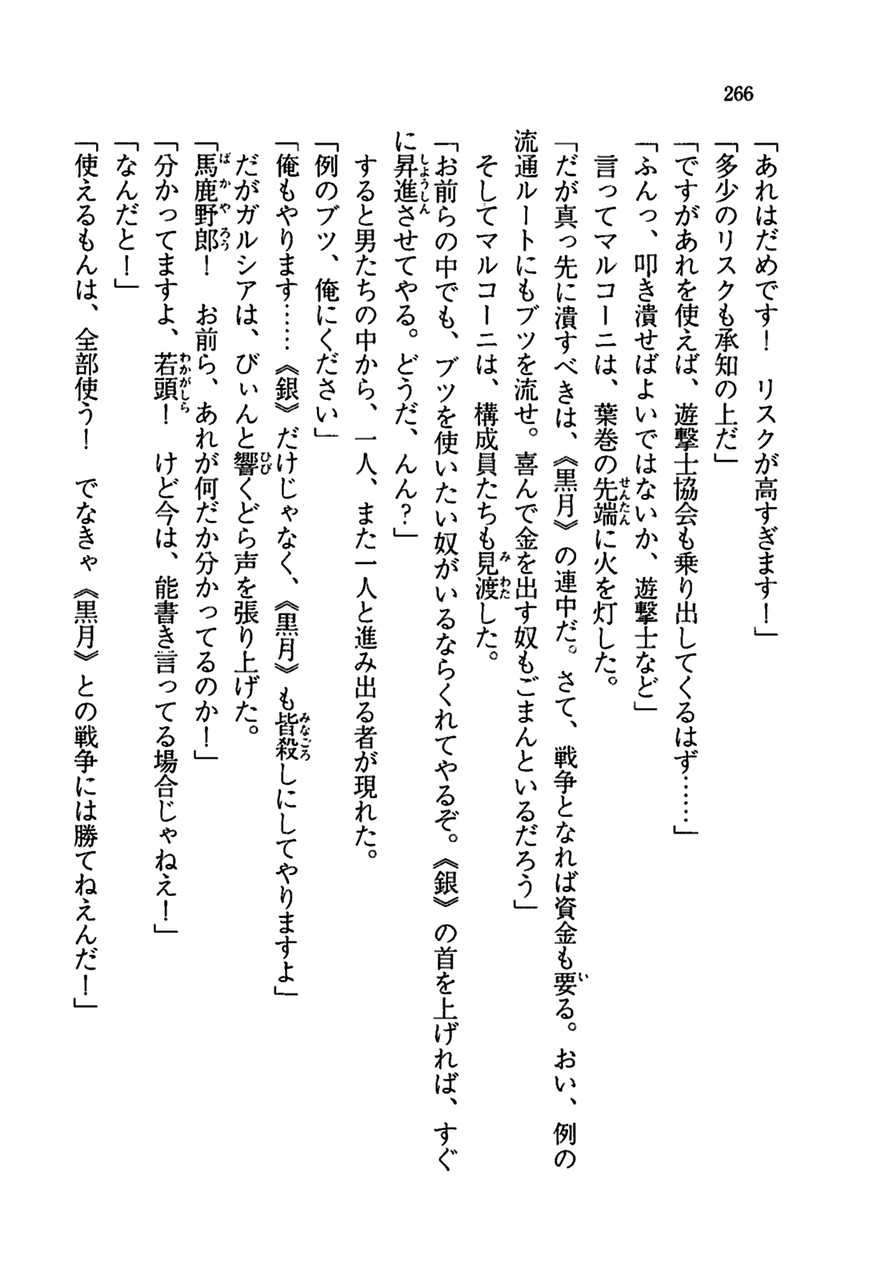 266
「あれはだめです！　リスクが高すぎます！」
「多少のリスクも承知の上だ」
「ですがあれを使えば、遊撃士協会も乗り出してくるはず……」
「ふんっ、叩き潰せばよいではないか、遊撃士など」
　言ってマルコーニは、葉巻の先端に火を灯した。
「だが真っ先に潰すべきは、《黒月》の連中だ。さて、戦争となれば資金も要る。おい、例の
流通ルートにもブツを流せ。喜んで金を出す奴もごまんといるだろう」
　そしてマルコーニは、構成員たちも見渡した。
「お前らの中でも、ブツを使いたい奴がいるならくれてやるぞ。《銀》の首を上げれば、すぐ
に昇進させてやる。どうだ、んん？」
　すると男たちの中から、一人、また一人と進み出る者が現れた。
「例のブツ、俺にください」
「俺もやります……《銀》だけじゃなく、《黒月》も皆殺しにしてやりますよ」
　だがガルシアは、びぃんと響くどら声を張り上げた。
「馬鹿野郎！　お前ら、あれが何だか分かってるのか！」
「分かってますよ、若頭！　けど今は、能書き言ってる場合じゃねえ！」
「なんだと！」
「使えるもんは、全部使う！　でなきゃ《黒月》との戦争には勝てねえんだ！」